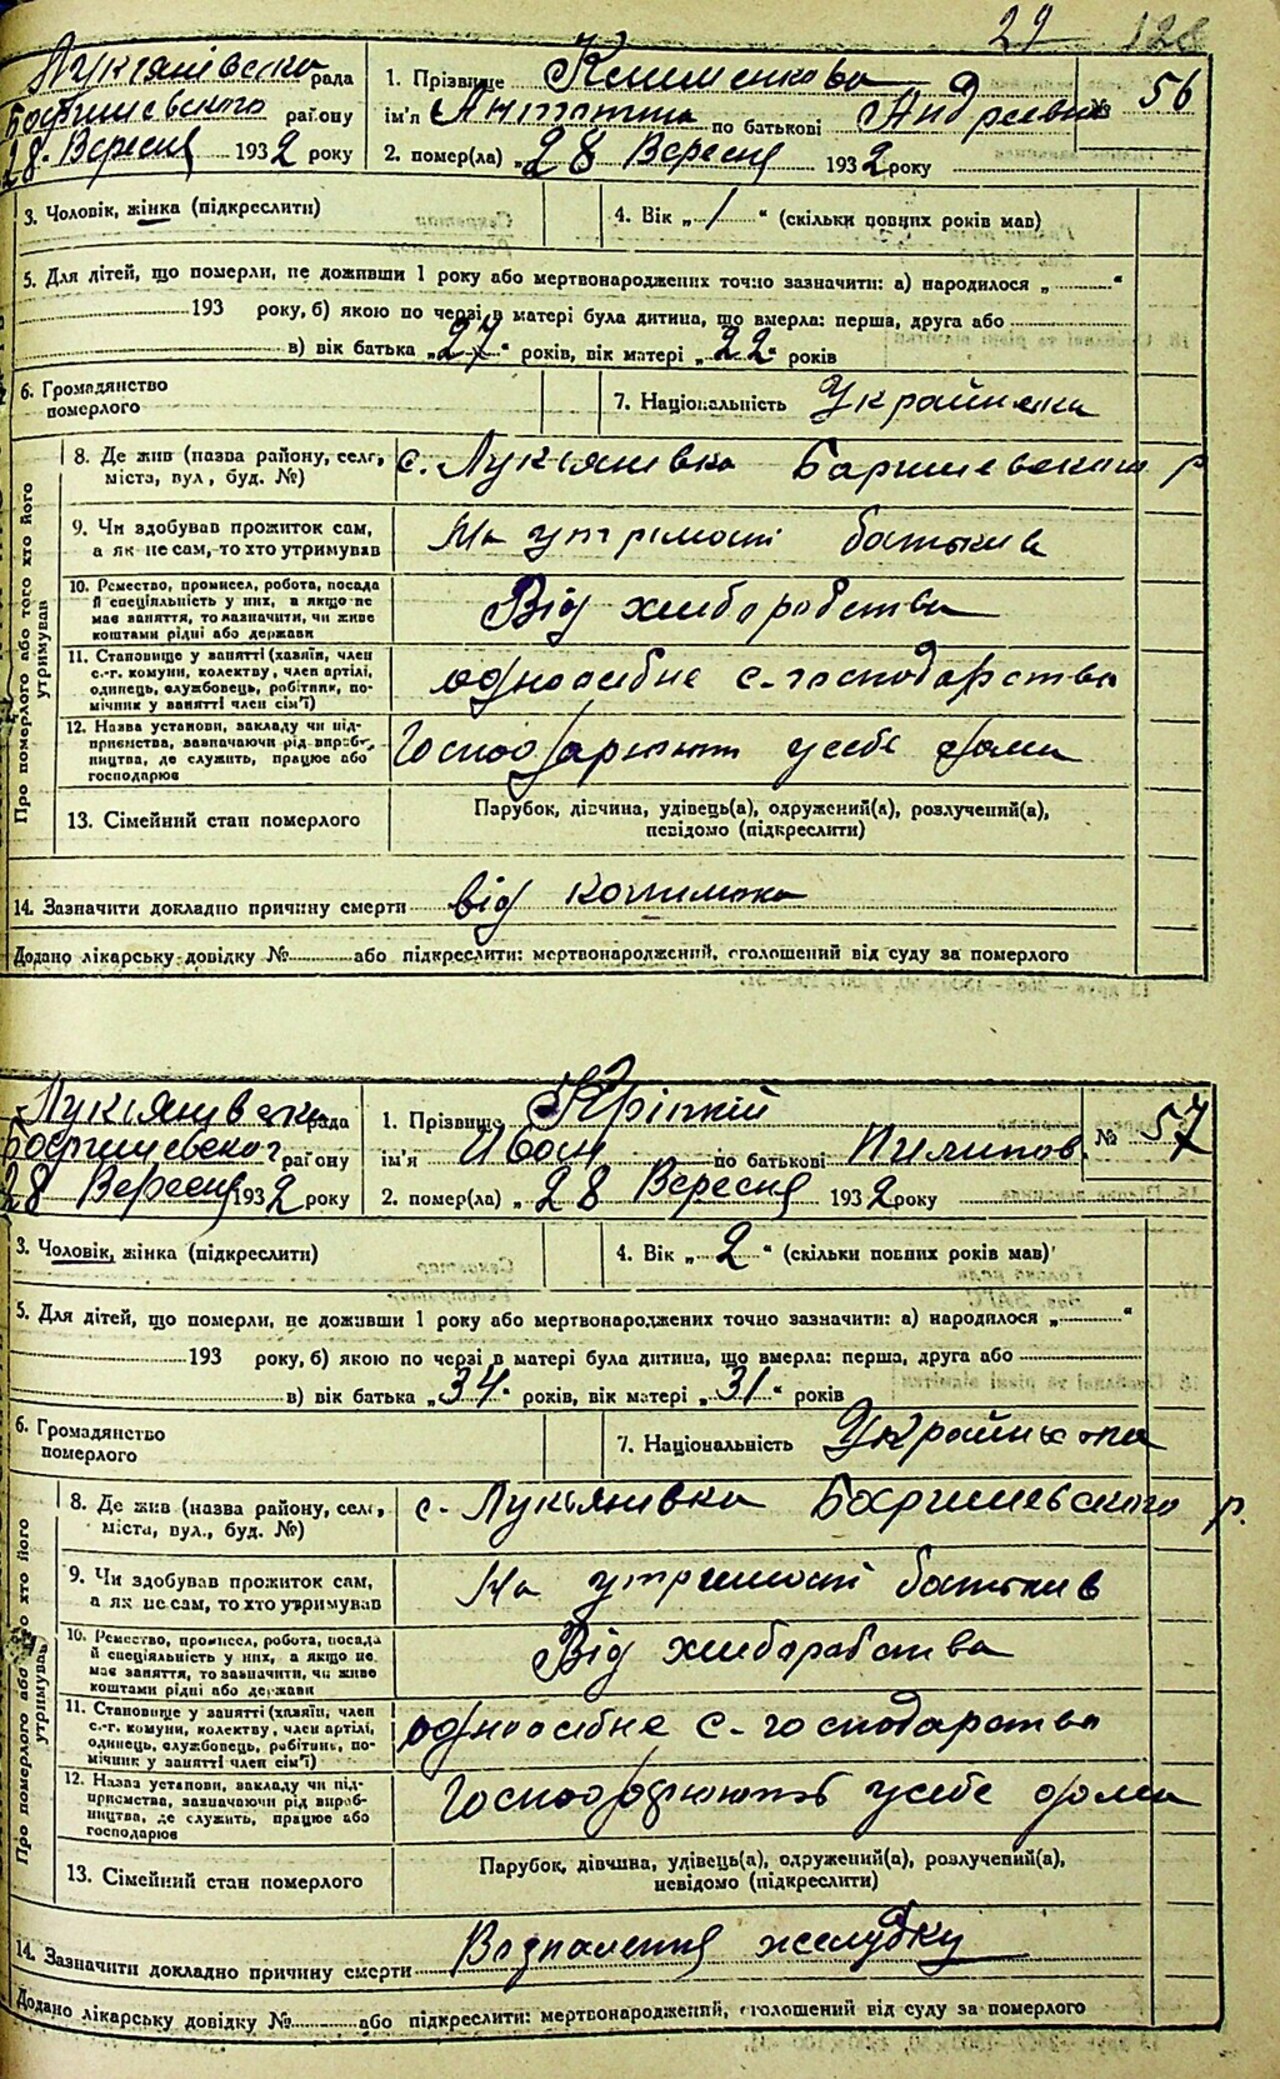 29
Лукіянівська рада
Баришевського району
28 Вересня 1932 року
1. Прізвище Клименкова
ім'я Антонина по батькові Андреевна
№ 56
2. помер(ла) „28 Вересня 1932 року
3. Чоловік, жінка (підкреслити)
4. Вік „1“ (скільки повних років мав)
5. Для дітей, що померли, не доживши 1 року або мертвонароджених точно зазначити: а) народилося „ “
193 року, б) якою по черзі в матері була дитина, що вмерла: перша, друга або
в) вік батька „27“ років, вік матері „22“ років
6. Громадянство
померлого
7. Національність Украйнська
Про померлого або того хто його
утримував
8. Де жив (назва району, селе,
міста, вул., буд. №)
с. Лукіянивка Баришевського р
9. Чи здобував прожиток сам,
а як не сам, то хто утримував
На утрімані батьків
10. Ремество, промисел, робота, посада
й спеціяльність у них, а якщо не
має заняття, то назначити, чи живе
коштами рідні або держави
Від хлиборобства
11. Становище у занятті (хазяїн, член
с.-г. комуни, колектву, член артілі,
одинець, службовець, робітник, по-
мічник у занятті член сім'ї)
одноосібне с-господарство
12. Назва установи, закладу чи під-
приємства, зазначаючи рід вироб-
ництва, де служить, працює або
господарює
Господарюють у себе дома
13. Сімейний стан померлого
Парубок, дівчина, удівець(а), одружений(а), розлучений(а),
невідомо (підкреслити)
14. Зазначити докладно причину смерти від коклюша
Додано лікарську довідку № або підкреслити: мертвонароджений, оголошений від суду за померлого
Лукіянивська рада
Баришевског району
28 Вересня 1932 року
1. Прізвище Кріпкій
ім'я Иван по батькові Пилипов.
№ 57
2. помер(ла) „28 Вересня 1932 року
3. Чоловік, жінка (підкреслити)
4. Вік „2“ (скільки повних років мав)
5. Для дітей, що померли, не доживши 1 року або мертвонароджених точно зазначити: а) народилося „ “
193 року, б) якою по черзі в матері була дитина, що вмерла: перша, друга або
в) вік батька „34“ років, вік матері „31“ років
6. Громадянство
померлого
7. Національність Украйнська
Про померлого або того хто його
утримував
8. Де жив (назва району, селе,
міста, вул., буд. №)
с. Лукіянивка Баришевського р.
9. Чи здобував прожиток сам,
а як не сам, то хто утримував
На утримані батьків
10. Ремество, промисел, робота, посада
й спеціяльність у них, а якщо не
має заняття, то зазначити, чи живе
коштами рідні або держави
Від хлиборобства
11. Становище у занятті (хазяїн, член
с.-г. комуни, колектву, член артілі,
одинець, службовець, робітник, по-
мічник у занятті член сім'ї)
одноосібне с-господарство
12. Назва установи, закладу чи під-
приємства, зазначаючи рід вироб-
ництва, де служить, працює або
господарює
Господорюють у себе дома
13. Сімейний стан померлого
Парубок, дівчина, удівець(а), одружений(а), розлучений(а),
невідомо (підкреслити)
14. Зазначити докладно причину смерти Воспалення желудку
Додано лікарську довідку № або підкреслити: мертвонароджений, оголошений від суду за померлого